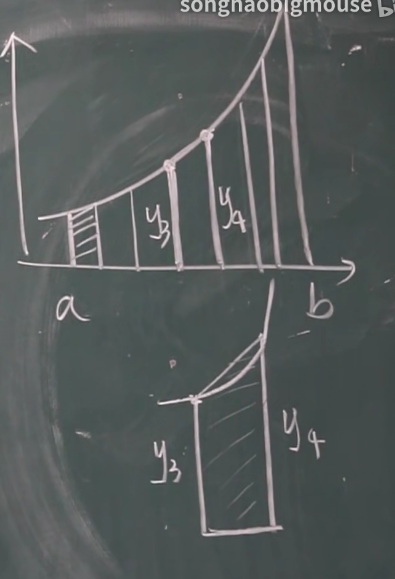 songhaobigmouse
y₃ y₄
a b
y₃ y₄